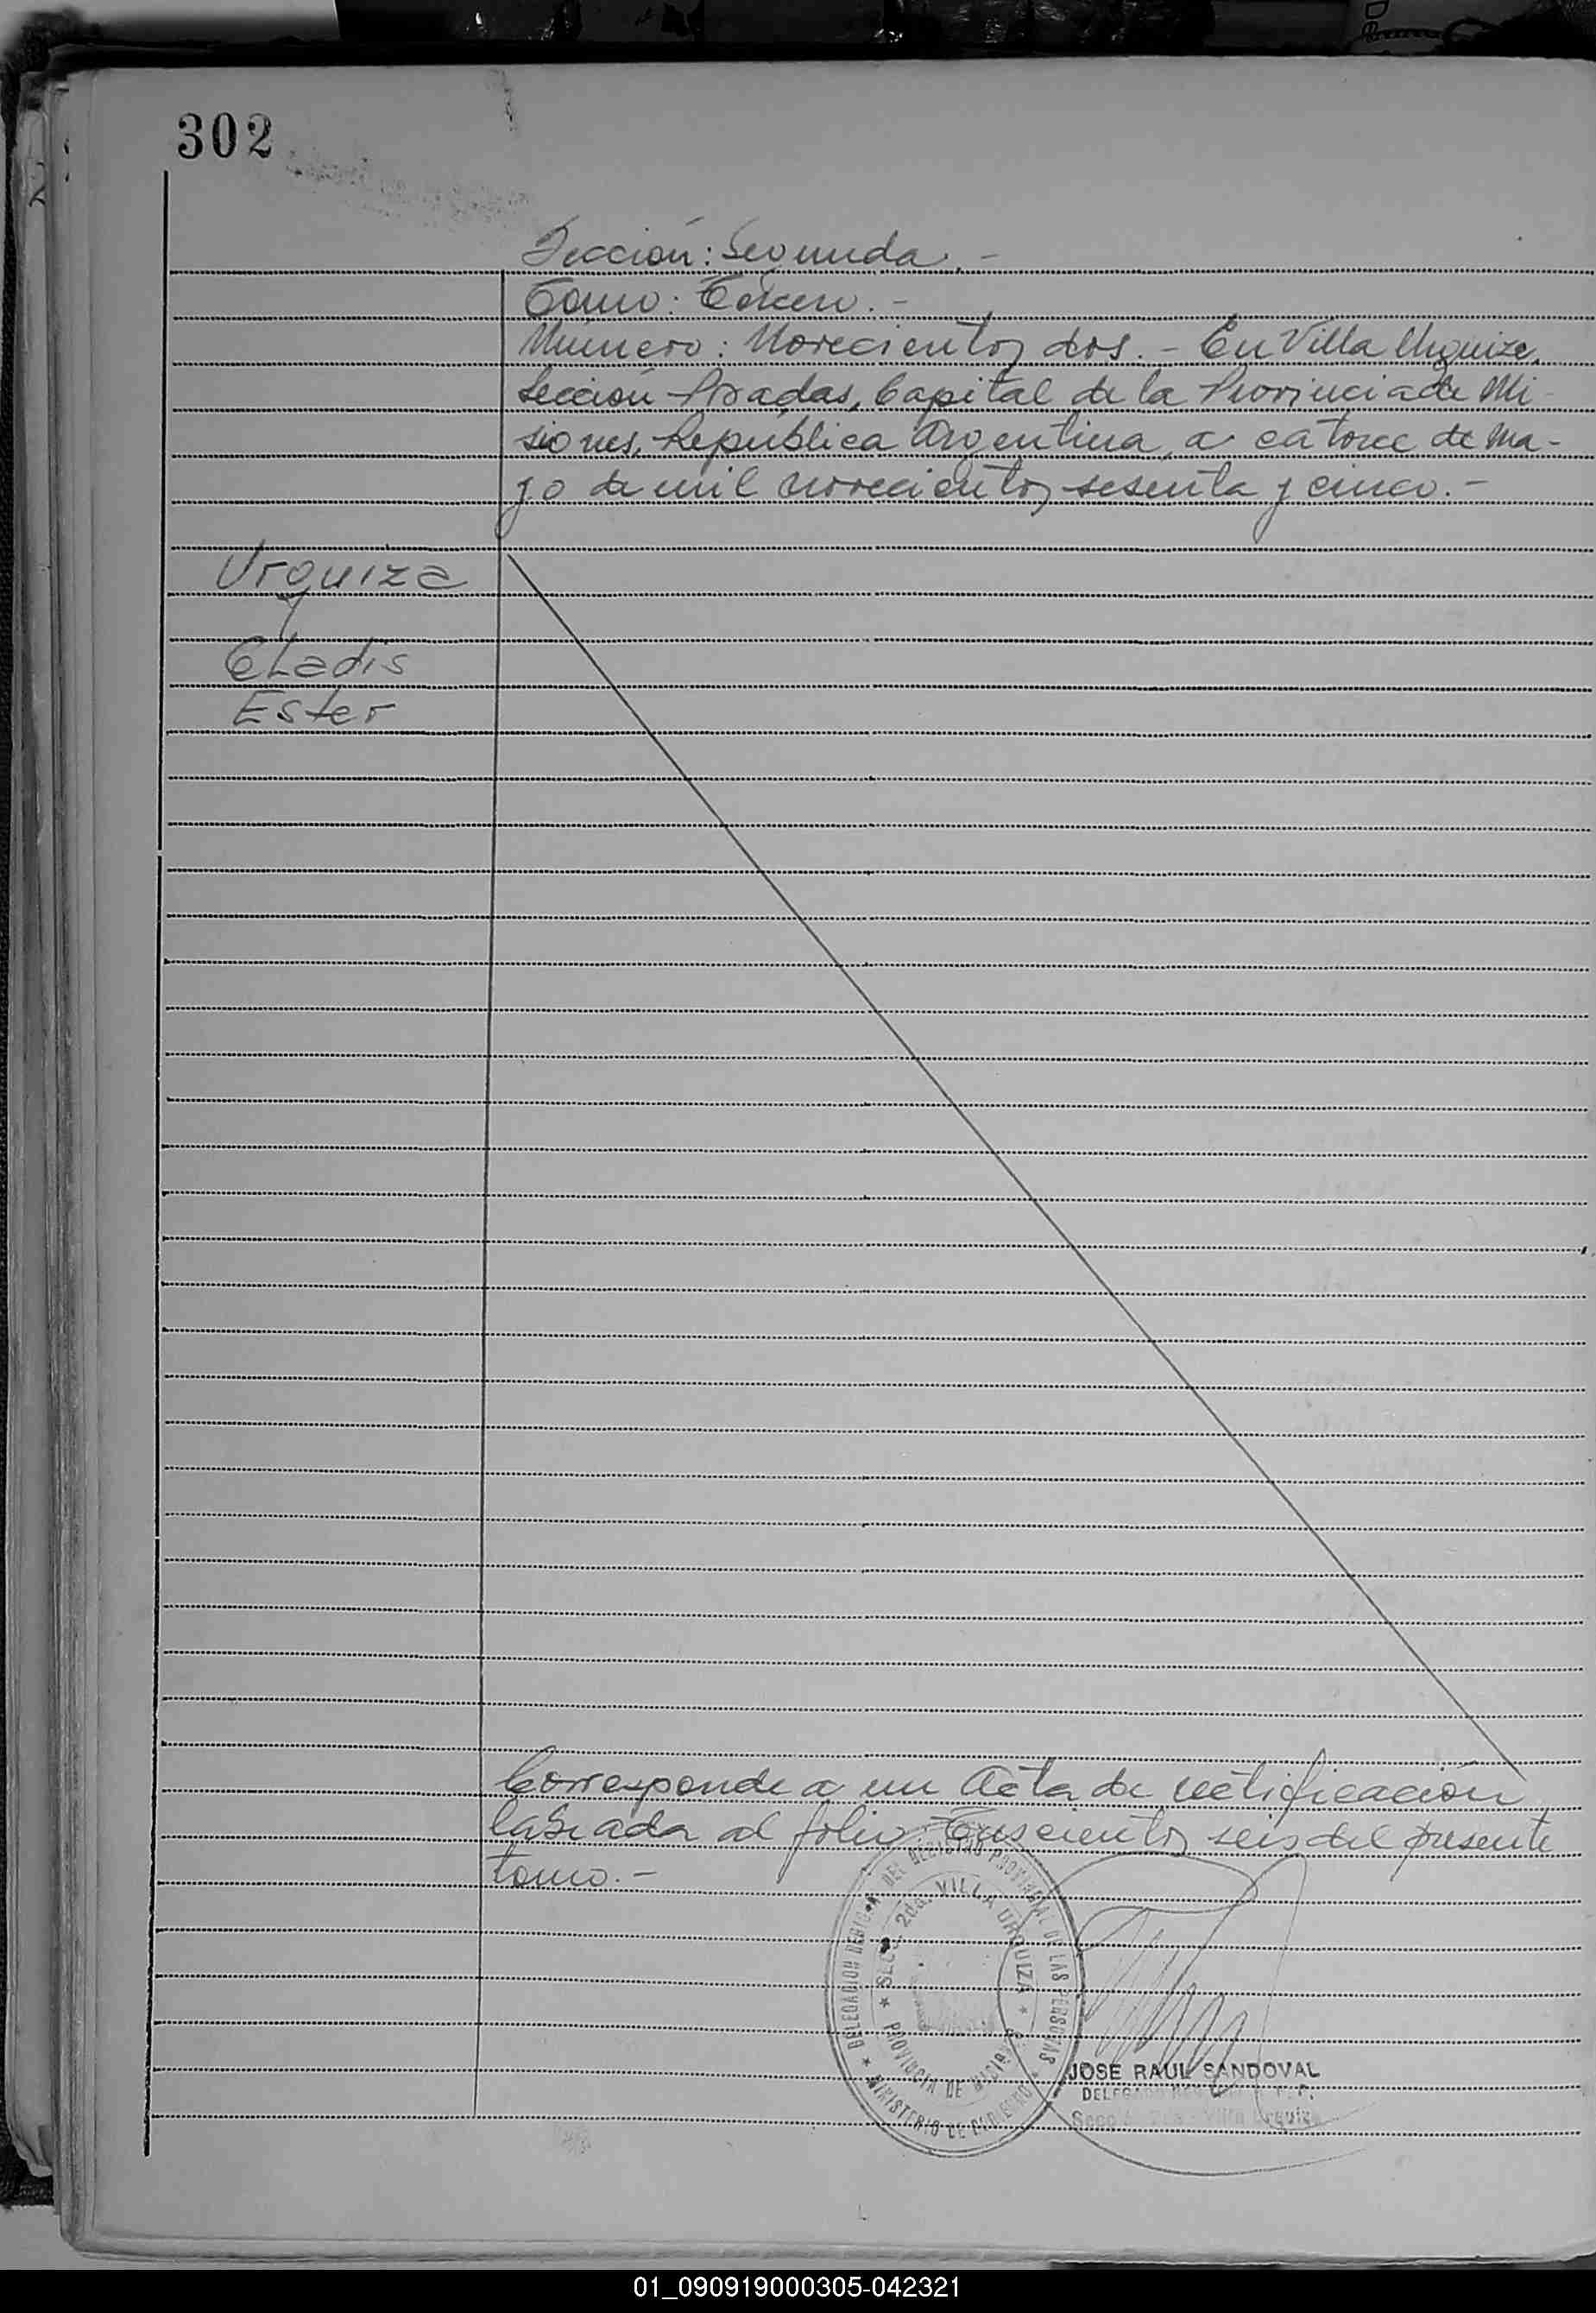 302
Sección: Segunda.-
Tomo: Tercero.-
Número: Novecientos dos.- En Villa Urquiza,
Sección Posadas, Capital de la Provincia de Mi-
siones, República Argentina, a catorce de Ma-
yo de mil novecientos sesenta y cinco.-
Urquiza
Eladis
Ester
Corresponde a un Acta de rectificación
labrada al folio: Trescientos seis del presente
tomo.-
DELEGACION REGIONAL DEL REGISTRO PROVINCIAL DE LAS PERSONAS
★ MINISTERIO DE GOBIERNO ★
★ SECC. 2da. VILLA URQUIZA ★
PROVINCIA DE MISIONES
JOSE RAUL SANDOVAL
Secc. 2da. Villa Urquiza
01_090919000305-042321